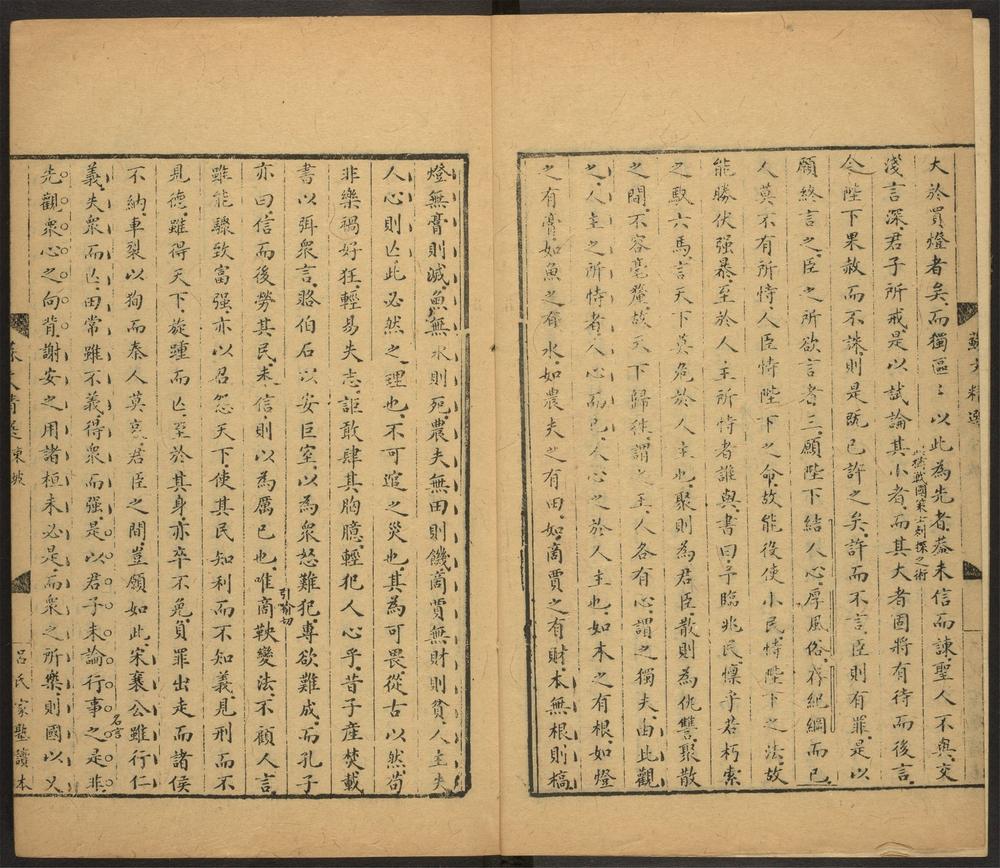 大於買燈者矣而獨區〻以此為先者蓋未信而諫聖人不與交
淺言深君子所戒是以試論其小者而其大者固將有待而後言
此據戰國策士刻探之術
今陛下果赦而不誅則是既已許之矣許而不言臣則有罪是以
願終言之臣之所欲言者三願陛下結人心厚風俗存紀綱而已
人莫不有所恃人臣恃陛下之命故能役使小民恃陛下之法故
能勝伏强暴至於人主所恃者誰與書曰予臨兆民懔乎若朽索
之馭六馬言天下莫危於人主也聚則為君臣散則為仇讐聚散
之間不容毫釐故天下歸往謂之王人各有心謂之獨夫由此觀
之人主之所恃者人心而已人心之於人主也如木之有根如燈
之有膏如魚之有水如農夫之有田如商賈之有財木無根則槁
燈無膏則滅魚無水則死農夫無田則饑商賈無財則貧人主失
人心則亾此必然之理也不可逭之災也其為可畏從古以然苟
非樂禍好狂輕易失志詎敢肆其胸臆輕犯人心乎昔子產焚載
書以弭衆言賂伯石以安巨室以為衆怒難犯專欲難成而孔子
亦曰信而後勞其民未信則以為厲已也唯商鞅變法不顧人言
引喻切
雖能驟致富强亦以召怨天下使其民知利而不知義見刑而不
見德雖得天下旋踵而亾至於其身亦卒不免負罪出走而諸侯
不納車裂以狥而秦人莫哀君臣之間豈願如此宋襄公雖行仁
義失衆而亾田常雖不義得衆而强是以君子未論行事之是非
名言
先觀衆心之向背謝安之用諸桓未必是而衆之所樂則國以乂
呂氏家塾讀本